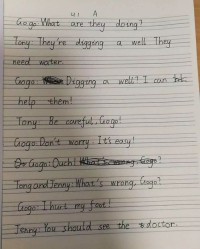 U1 A
Gogo: What are they doing?
Tony: They're digging a well. They
need water.
Gogo: Digging a well? I can
help them!
Tony: Be careful, Gogo!
Gogo: Don't worry. It's easy!
Gogo: Ouch!
Tony and Jenny: What's wrong, Gogo?
Gogo: I hurt my foot!
Jenny: You should see the doctor.